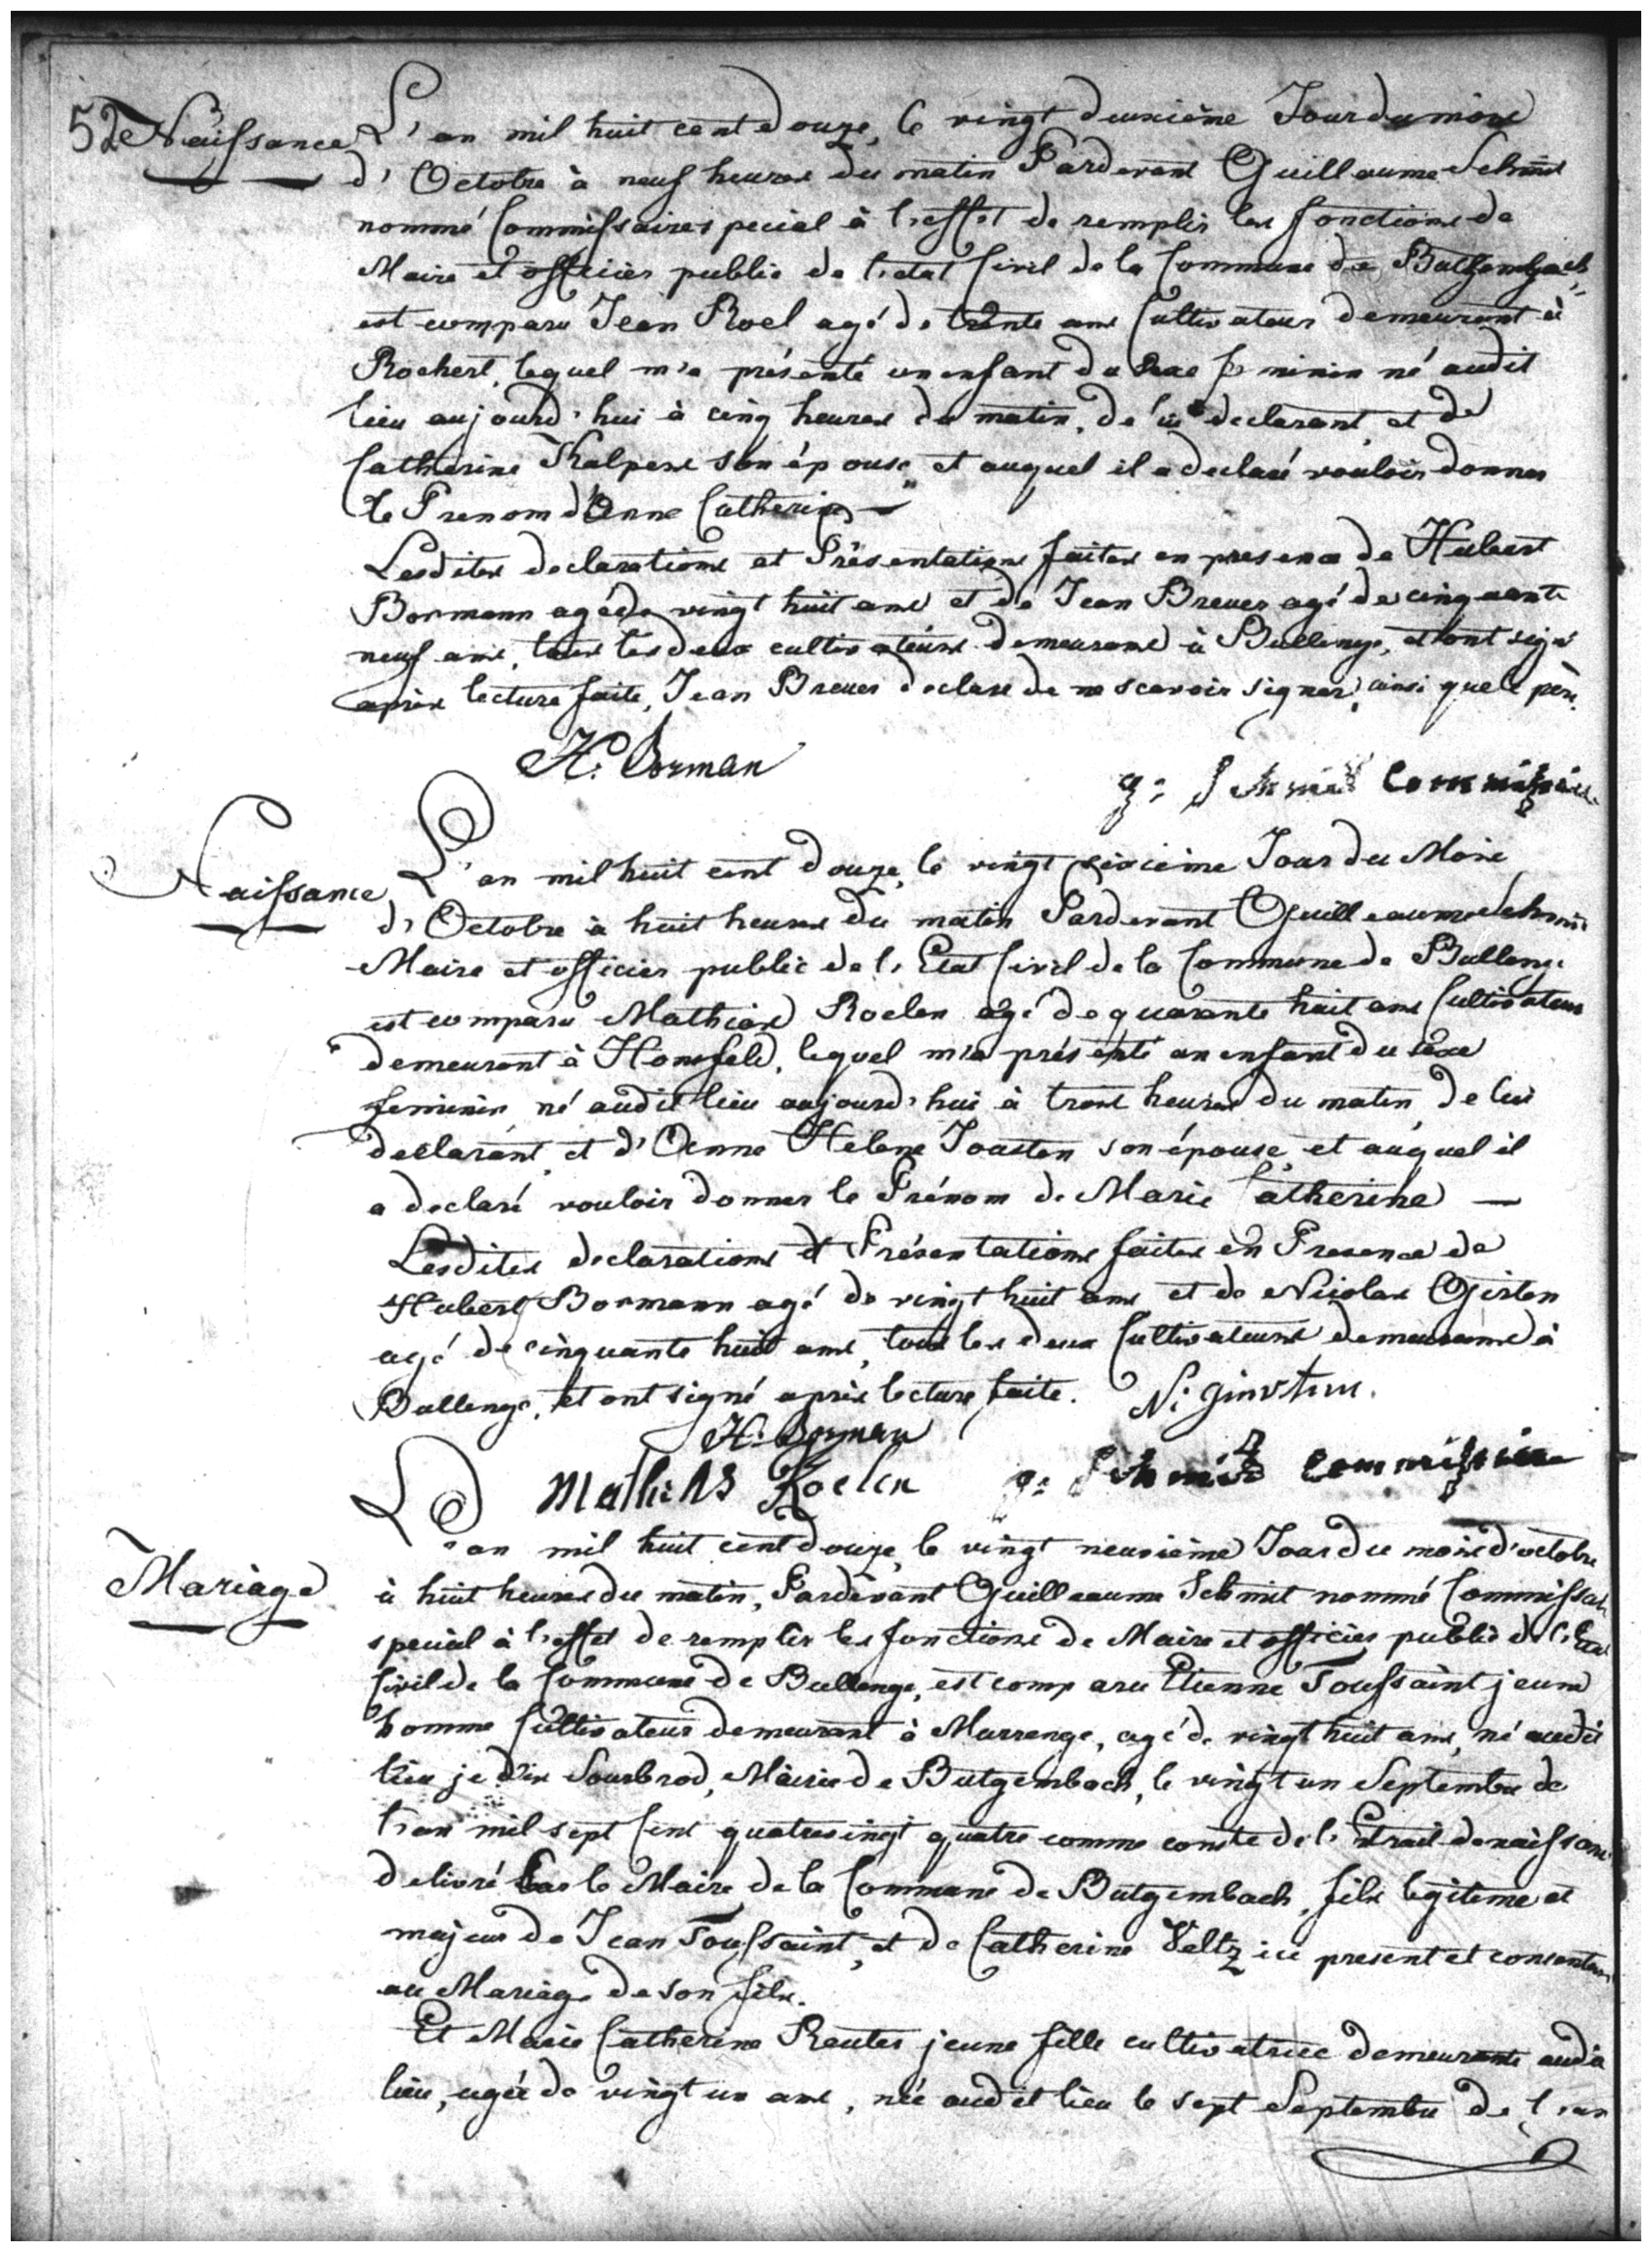 52 Naissance L'an mil huit cent douze, le vingt deuxième Jour du mois
d'Octobre à neuf heures du matin Pardevant Guillaume Schmit
nommé Commissaire special à l'effet de remplir les fonctions de
Maire et officier public de l'etat Civil de la Commune de
est comparu Jean Roel agé de trente ans Cultivateur demeurant à
Rochert, lequel m'a présenté un enfant du sexe feminin né audit
lieu aujourd'hui à cinq heures du matin, de lui declarant, et de
Catherine Kalpers son épouse, et auquel il a declaré vouloir donner
le Prenom d'Anne Catherine —
Lesdites declarations et Présentations faites en presence de Hubert
Bormann agé de vingt huit ans et de Jean Breuer agé de cinquante
neuf ans, tous les deux cultivateurs demeurans à Bullenge, et ont signé
après lecture faite, Jean Breuer declare de ne scavoir signer, ainsi que le père.
H. Borman
g: Schmit Commissaire
Naissance L'an mil huit cent douze, le vingt sixieme Jour du Mois
d'Octobre à huit heures du matin Pardevant Guilleaume Schmit
Maire et officier public de l'Etat Civil de la Commune de Bullenge
est comparu Mathias Roelen agé de quarante huit ans Cultivateur
demeurant à Honsfeld, lequel m'a présenté un enfant du sexe
feminin né audit lieu aujourd'hui à trois heures du matin de lui
declarant, et d'Anne Helene Jousten son épouse, et auquel il
a declaré vouloir donner le Prénom de Marie Catherine —
Lesdites declarations et Présentations faites en Presence de
Hubert Bormann agé de vingt huit ans et de Nicolas Girten
agé de cinquante huit ans, tous les deux Cultivateurs demeurans à
Bullenge, et ont signé après lecture faite.
H. Borman
Mathias Roelen g: Schmit Commissaire
L'an mil huit cent douze, le vingt neuvième Jour du mois d'octobre
Mariage à huit heures du matin, Pardevant Guilleaume Schmit nommé Commissaire
special à l'effet de remplir les fonctions de Maire et officier public de l'Etat
Civil de la Commune de Bullenge, est comparu Etienne Toussaint jeune
homme Cultivateur demeurant à Murrenge, agé de vingt huit ans, né audit
lieu je dis Sourbrod, Mairie de Butgembach, le vingt un Septembre de
l'an mil sept Cent quatrevingt quatre comme conste de l'Extrait de naissance
delivré Par le Maire de la Commune de Butgembach, fils legiteme et
majeur de Jean Toussaint, et de Catherine Veltz ici present et consentant
au Mariage de son fils.
Et Marie Catherine Reuter jeune fille cultivatrice demeurante audit
lieu, agée de vingt un ans, née audit lieu le sept Septembre de l'an